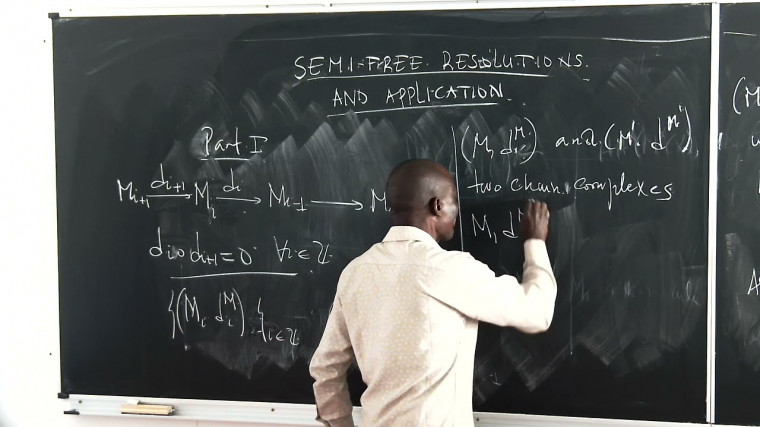 SEMI-FREE RESOLUTIONS.
AND APPLICATION.
Part I
M_{i+1} \xrightarrow{d_{i+1}} M_i \xrightarrow{d_i} M_{i-1} → M
d_i o d_{i+1} = 0 ∀i ∈ ℤ
{(M_i, d_i^M)}_{i∈ℤ}
(M, d^M) and (M', d^{M'}),
two chain complexes
M, d
(M